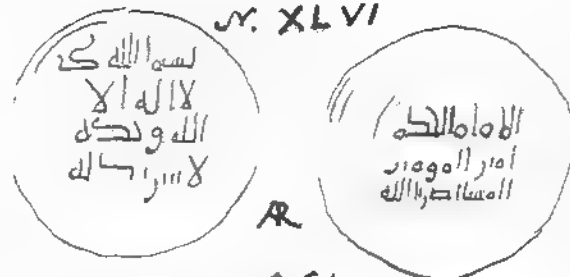 N. XLVI
بسم الله
لا اله الا
الله وحده
لا شريك له
الامام الحكم
امير المومنين
المستنصر بالله
AR